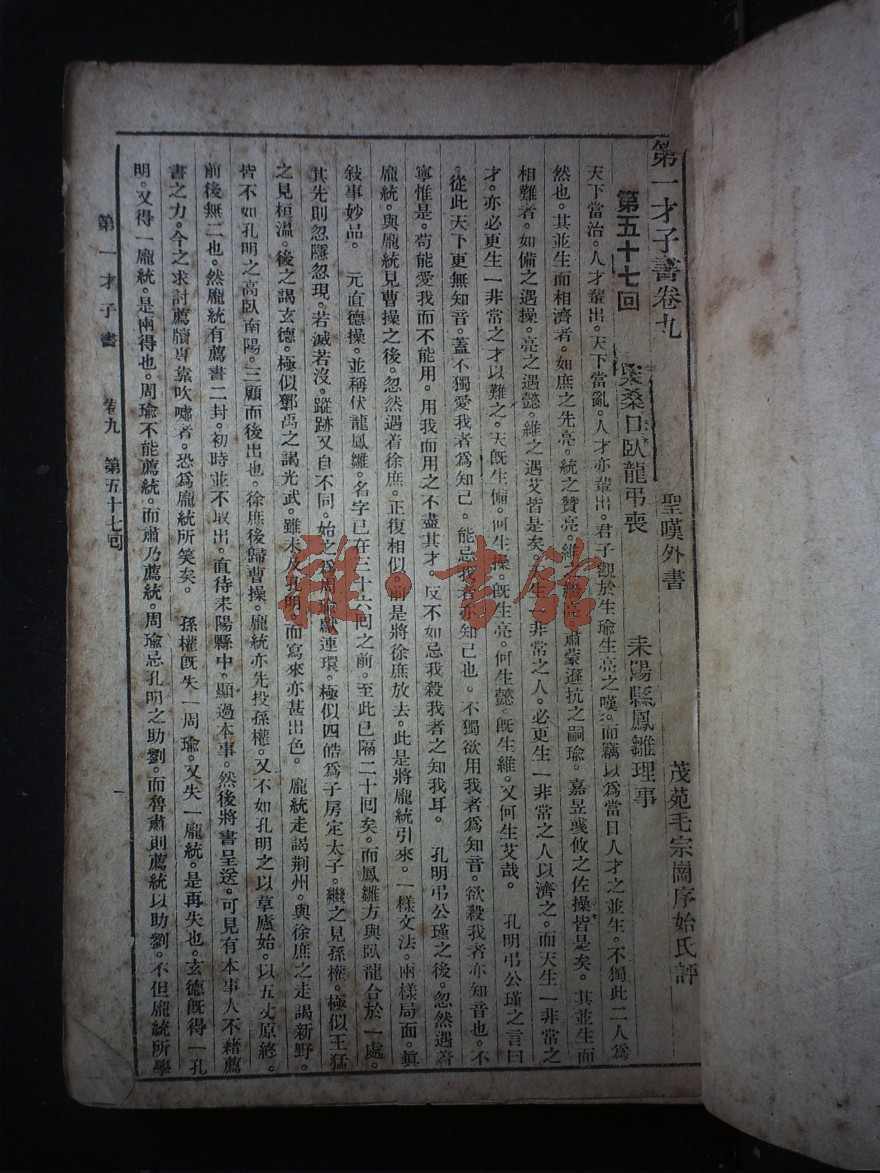 第一才子書卷九
聖嘆外書
茂苑毛宗崗序始氏評
第五十七回
柴桑口臥龍弔喪
耒陽縣鳳雛理事
天下當治。人才輩出。天下當亂。人才亦輩出。君子觀於生瑜生亮之嘆。而竊以爲當日人才之並生。不獨此二人爲
然也。其並生而相濟者。如庶之先亮。統之贊亮。維之繼亮。肅蒙遜抗之嗣瑜。嘉昱彧攸之佐操皆是矣。其並生而
相難者。如備之遇操。亮之遇懿。維之遇艾皆是矣。生一非常之人。必更生一非常之人以濟之。而天生一非常之
才。亦必更生一非常之才以難之。天旣生備。何生操。旣生亮。何生懿。旣生維。又何生艾哉。　孔明弔公瑾之言曰
從此天下更無知音。蓋不獨愛我者爲知己。能忌我者亦知己也。不獨欲用我者爲知音。欲殺我者亦知音也。不
寧惟是。苟能愛我而不能用。用我而用之不盡其才。反不如忌我殺我者之知我耳。　孔明弔公瑾之後。忽然遇着
龐統。與龐統見曹操之後。忽然遇着徐庶。正復相似。前是將徐庶放去。此是將龐統引來。一樣文法。兩樣局面。眞
敍事妙品。　元直德操。並稱伏龍鳳雛。名字已在三十六回之前。至此已隔二十回矣。而鳳雛方與臥龍合於一處。
其先則忽隱忽現。若滅若沒。蹤跡又自不同。始之爲周瑜獻連環。極似四皓爲子房定太子。繼之見孫權。極似王猛
之見桓溫。後之謁玄德。極似鄧禹之謁光武。雖未及孔明。而寫來亦甚出色。　龐統走謁荆州。與徐庶之走謁新野。
皆不如孔明之高臥南陽。三顧而後出也。徐庶後歸曹操。龐統亦先投孫權。又不如孔明之以草廬始。以五丈原終。
前後無二也。然龐統有薦書二封。初時並不取出。直待耒陽縣中。顯過本事。然後將書呈送。可見有本事人不藉薦
書之力。今之求討薦牘專靠吹噓者。恐爲龐統所笑矣。　孫權旣失一周瑜。又失一龐統。是再失也。玄德旣得一孔
明。又得一龐統。是兩得也。周瑜不能薦統。而肅乃薦統。周瑜忌孔明之助劉。而魯肅則薦統以助劉。不但龐統所學
第一才子書　卷九　第五十七回　一
雅·書館